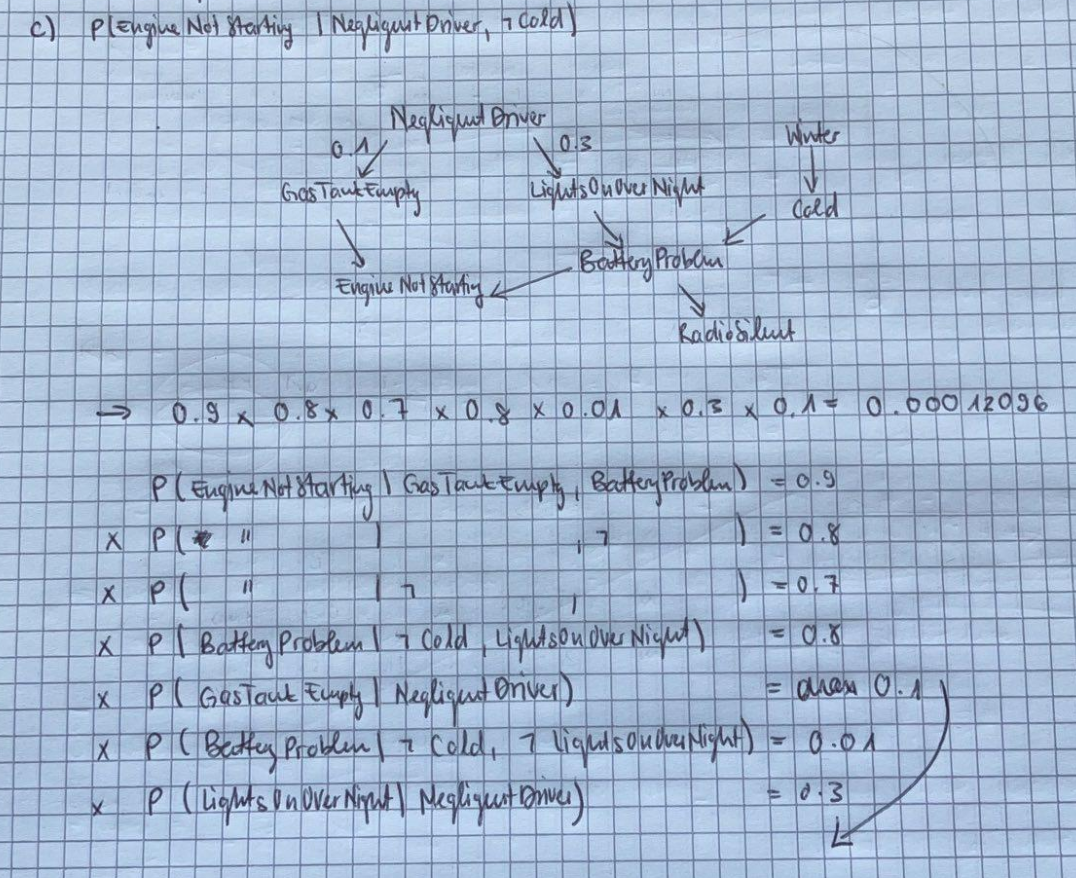 c) P(Engine Not Starting | NegligentDriver, ¬ Cold)
Negligent Driver
0.1 0.3
Winter
GasTankEmpty LightsOnOverNight
Cold
BatteryProblem
Engine Not Starting
RadioSilent
→ 0.9 x 0.8 x 0.7 x 0.8 x 0.01 x 0.3 x 0.1 = 0.00012096
P(EngineNotStarting | GasTankEmpty, BatteryProblem) = 0.9
x P( " | , ¬ ) = 0.8
x P( " | ¬ , ) = 0.7
x P( BatteryProblem | ¬ Cold, LightsOnOverNight) = 0.8
x P( GasTank Empty | NegligentDriver) = 0.1
x P( BatteryProblem | ¬ Cold, ¬ LightsOnOverNight) = 0.01
x P( LightsOnOverNight | NegligentDriver) = 0.3